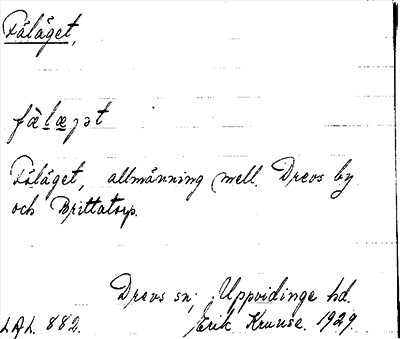 Fäläget,
fälægət
Fäläget, allmänning mell. Drevs by
och Brittatorp.
Drevs sn; Uppvidinge hd.
LAL. 882. Erik Kruuse. 1929.